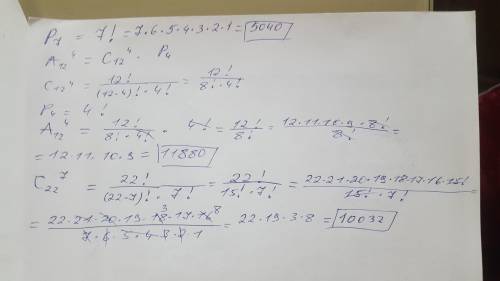 P₇ = 7! = 7·6·5·4·3·2·1 = 5040
A₁₂⁴ = C₁₂⁴ · P₄
C₁₂⁴ = 12!/((12-4)!·4!) = 12!/(8!·4!)
P₄ = 4!
A₁₂⁴ = 12!/(8!·4!) · 4! = 12!/8! = 12·11·10·9·8!/8! =
= 12·11·10·9 = 11880
C₂₂⁷ = 22!/((22-7)!·7!) = 22!/(15!·7!) = 22·21·20·19·18·17·16·15!/(15!·7!) =
= 22·21·20·19·18³·17·16⁸/(7·6·5·4·3·2·1) = 22·19·3·8 = 10032